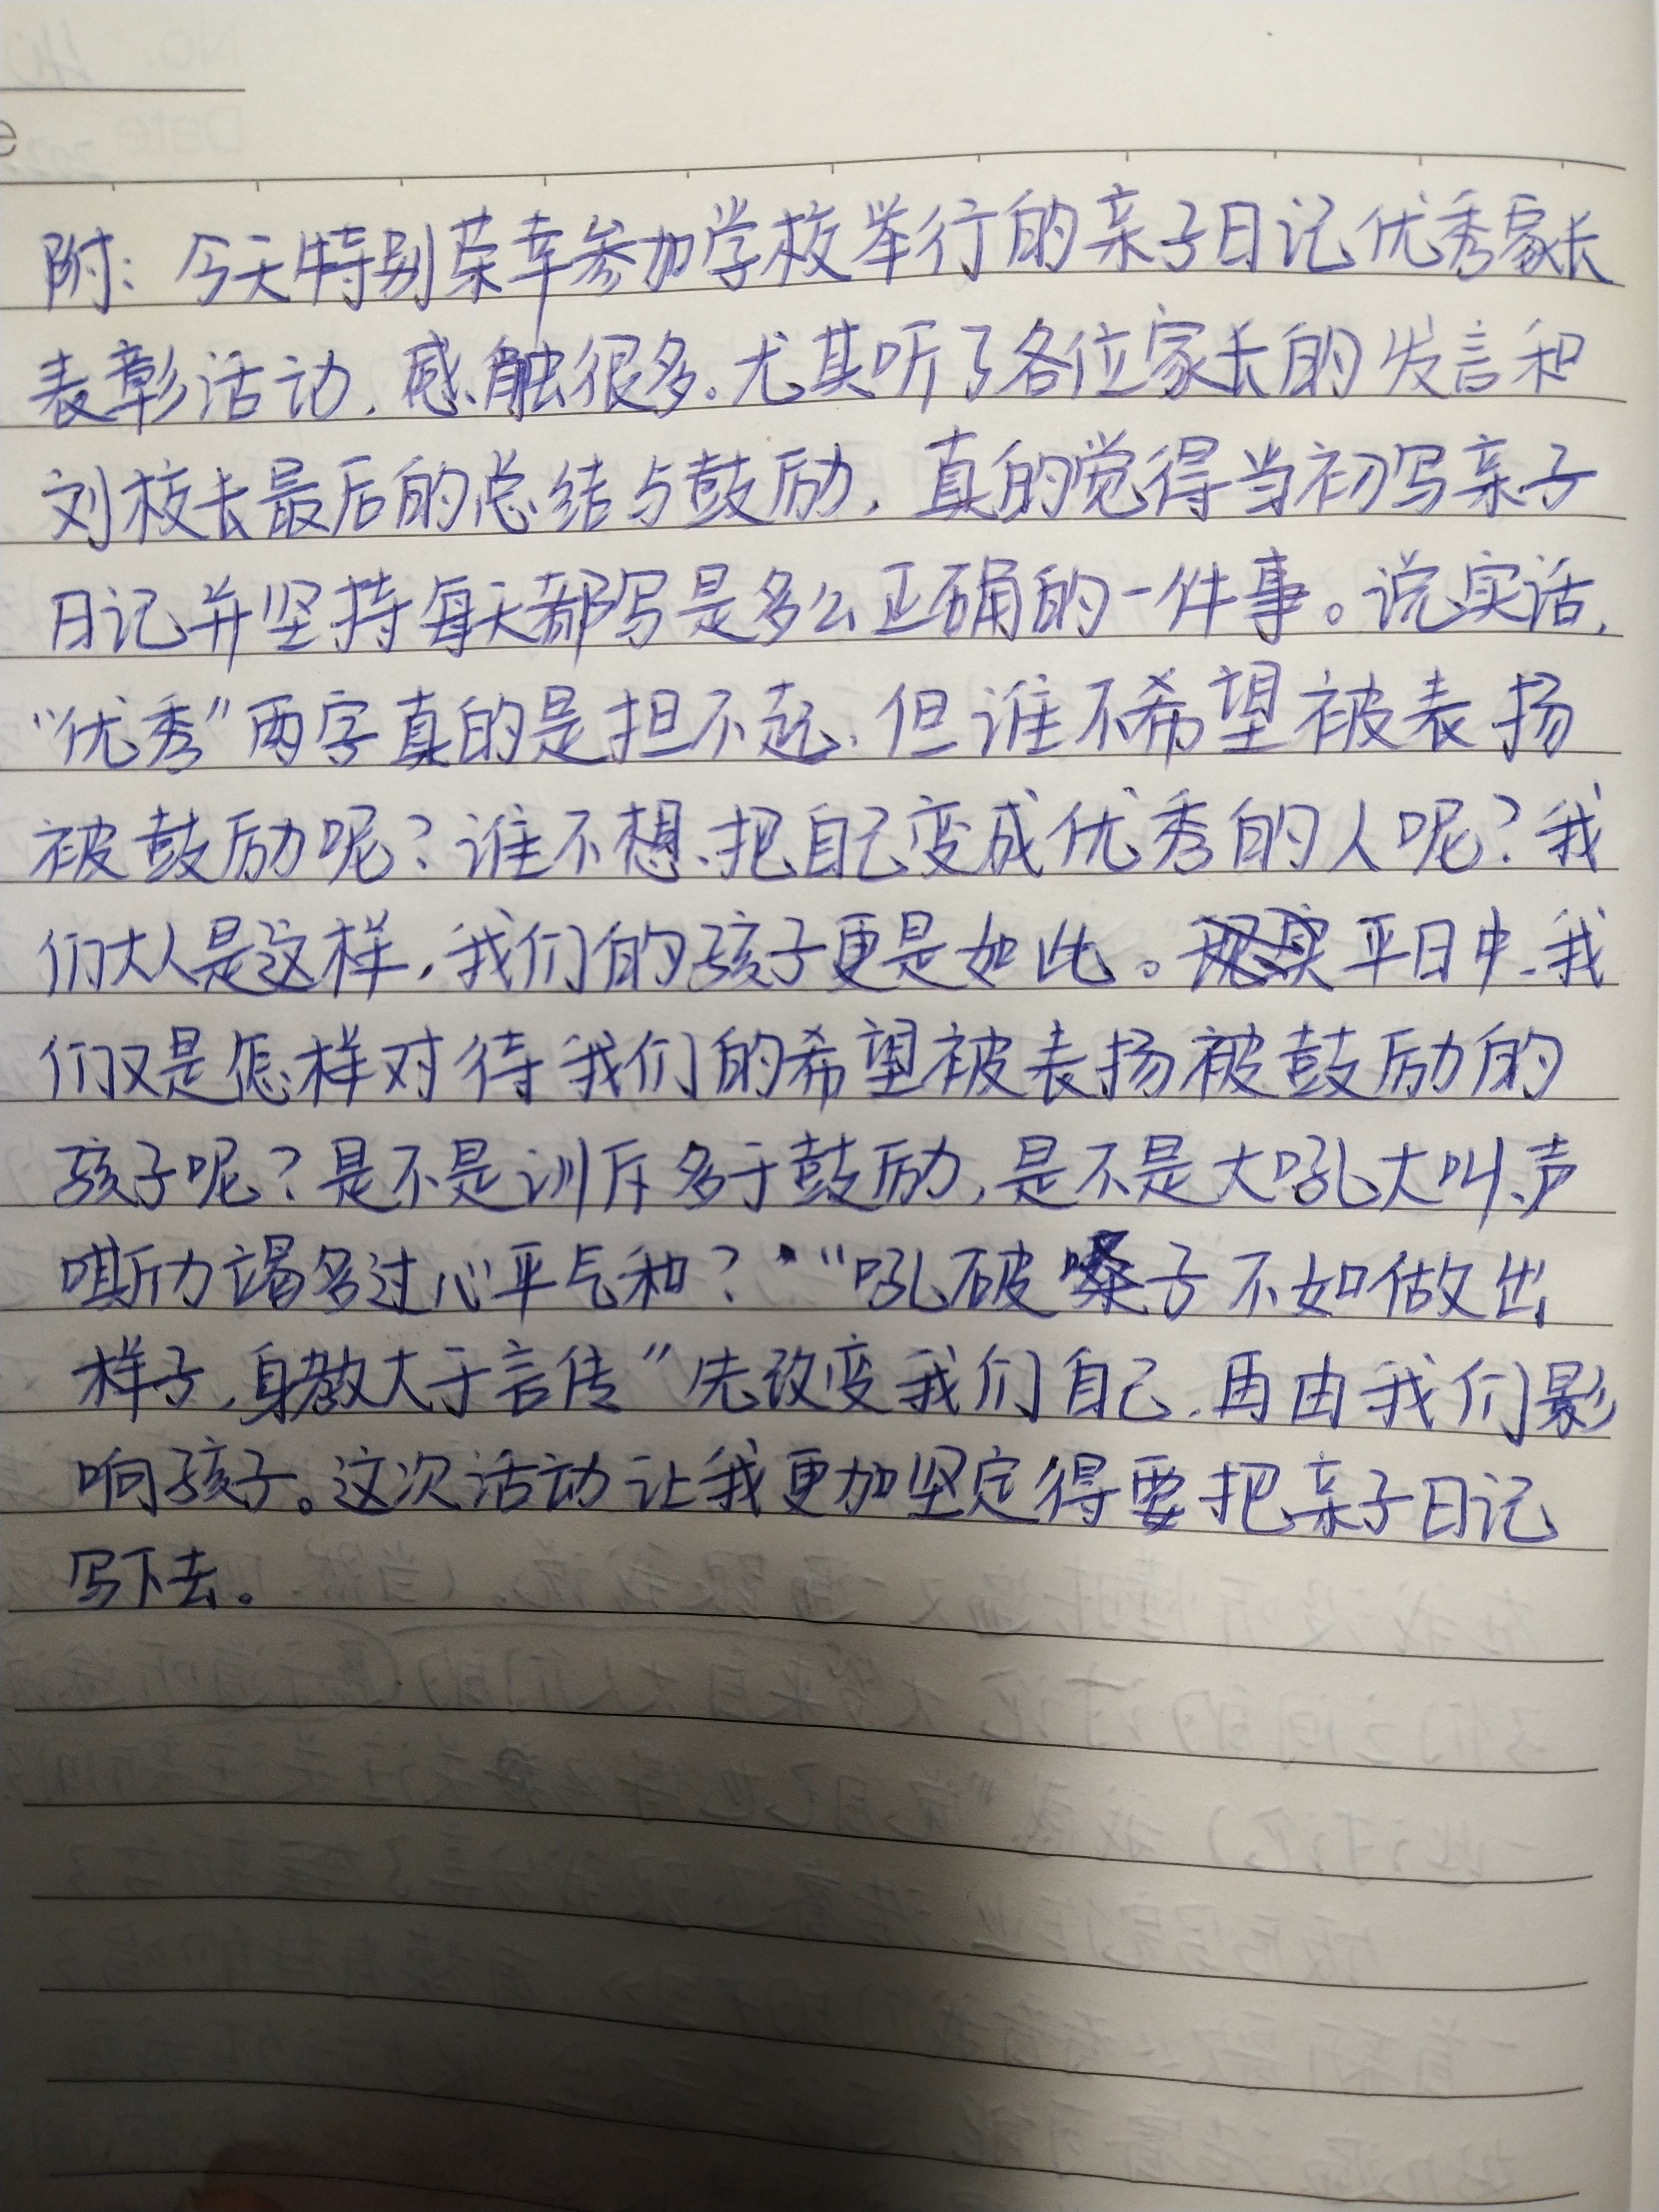 附：今天特别荣幸参加学校举行的亲子日记优秀家长
表彰活动，感触很多。尤其听了各位家长的发言和
刘校长最后的总结与鼓励，真的觉得当初写亲子
日记并坚持每天都写是多么正确的一件事。说实话，
“优秀”两字真的是担不起，但谁不希望被表扬
被鼓励呢？谁不想把自己变成优秀的人呢？我
们大人是这样，我们的孩子更是如此。平日中，我
们又是怎样对待我们的希望被表扬被鼓励的
孩子呢？是不是训斥多于鼓励，是不是大吼大叫、声
嘶力竭多过心平气和？“吼破嗓子不如做出
样子，身教大于言传”先改变我们自己，再由我们影
响孩子。这次活动让我更加坚定得要把亲子日记
写下去。